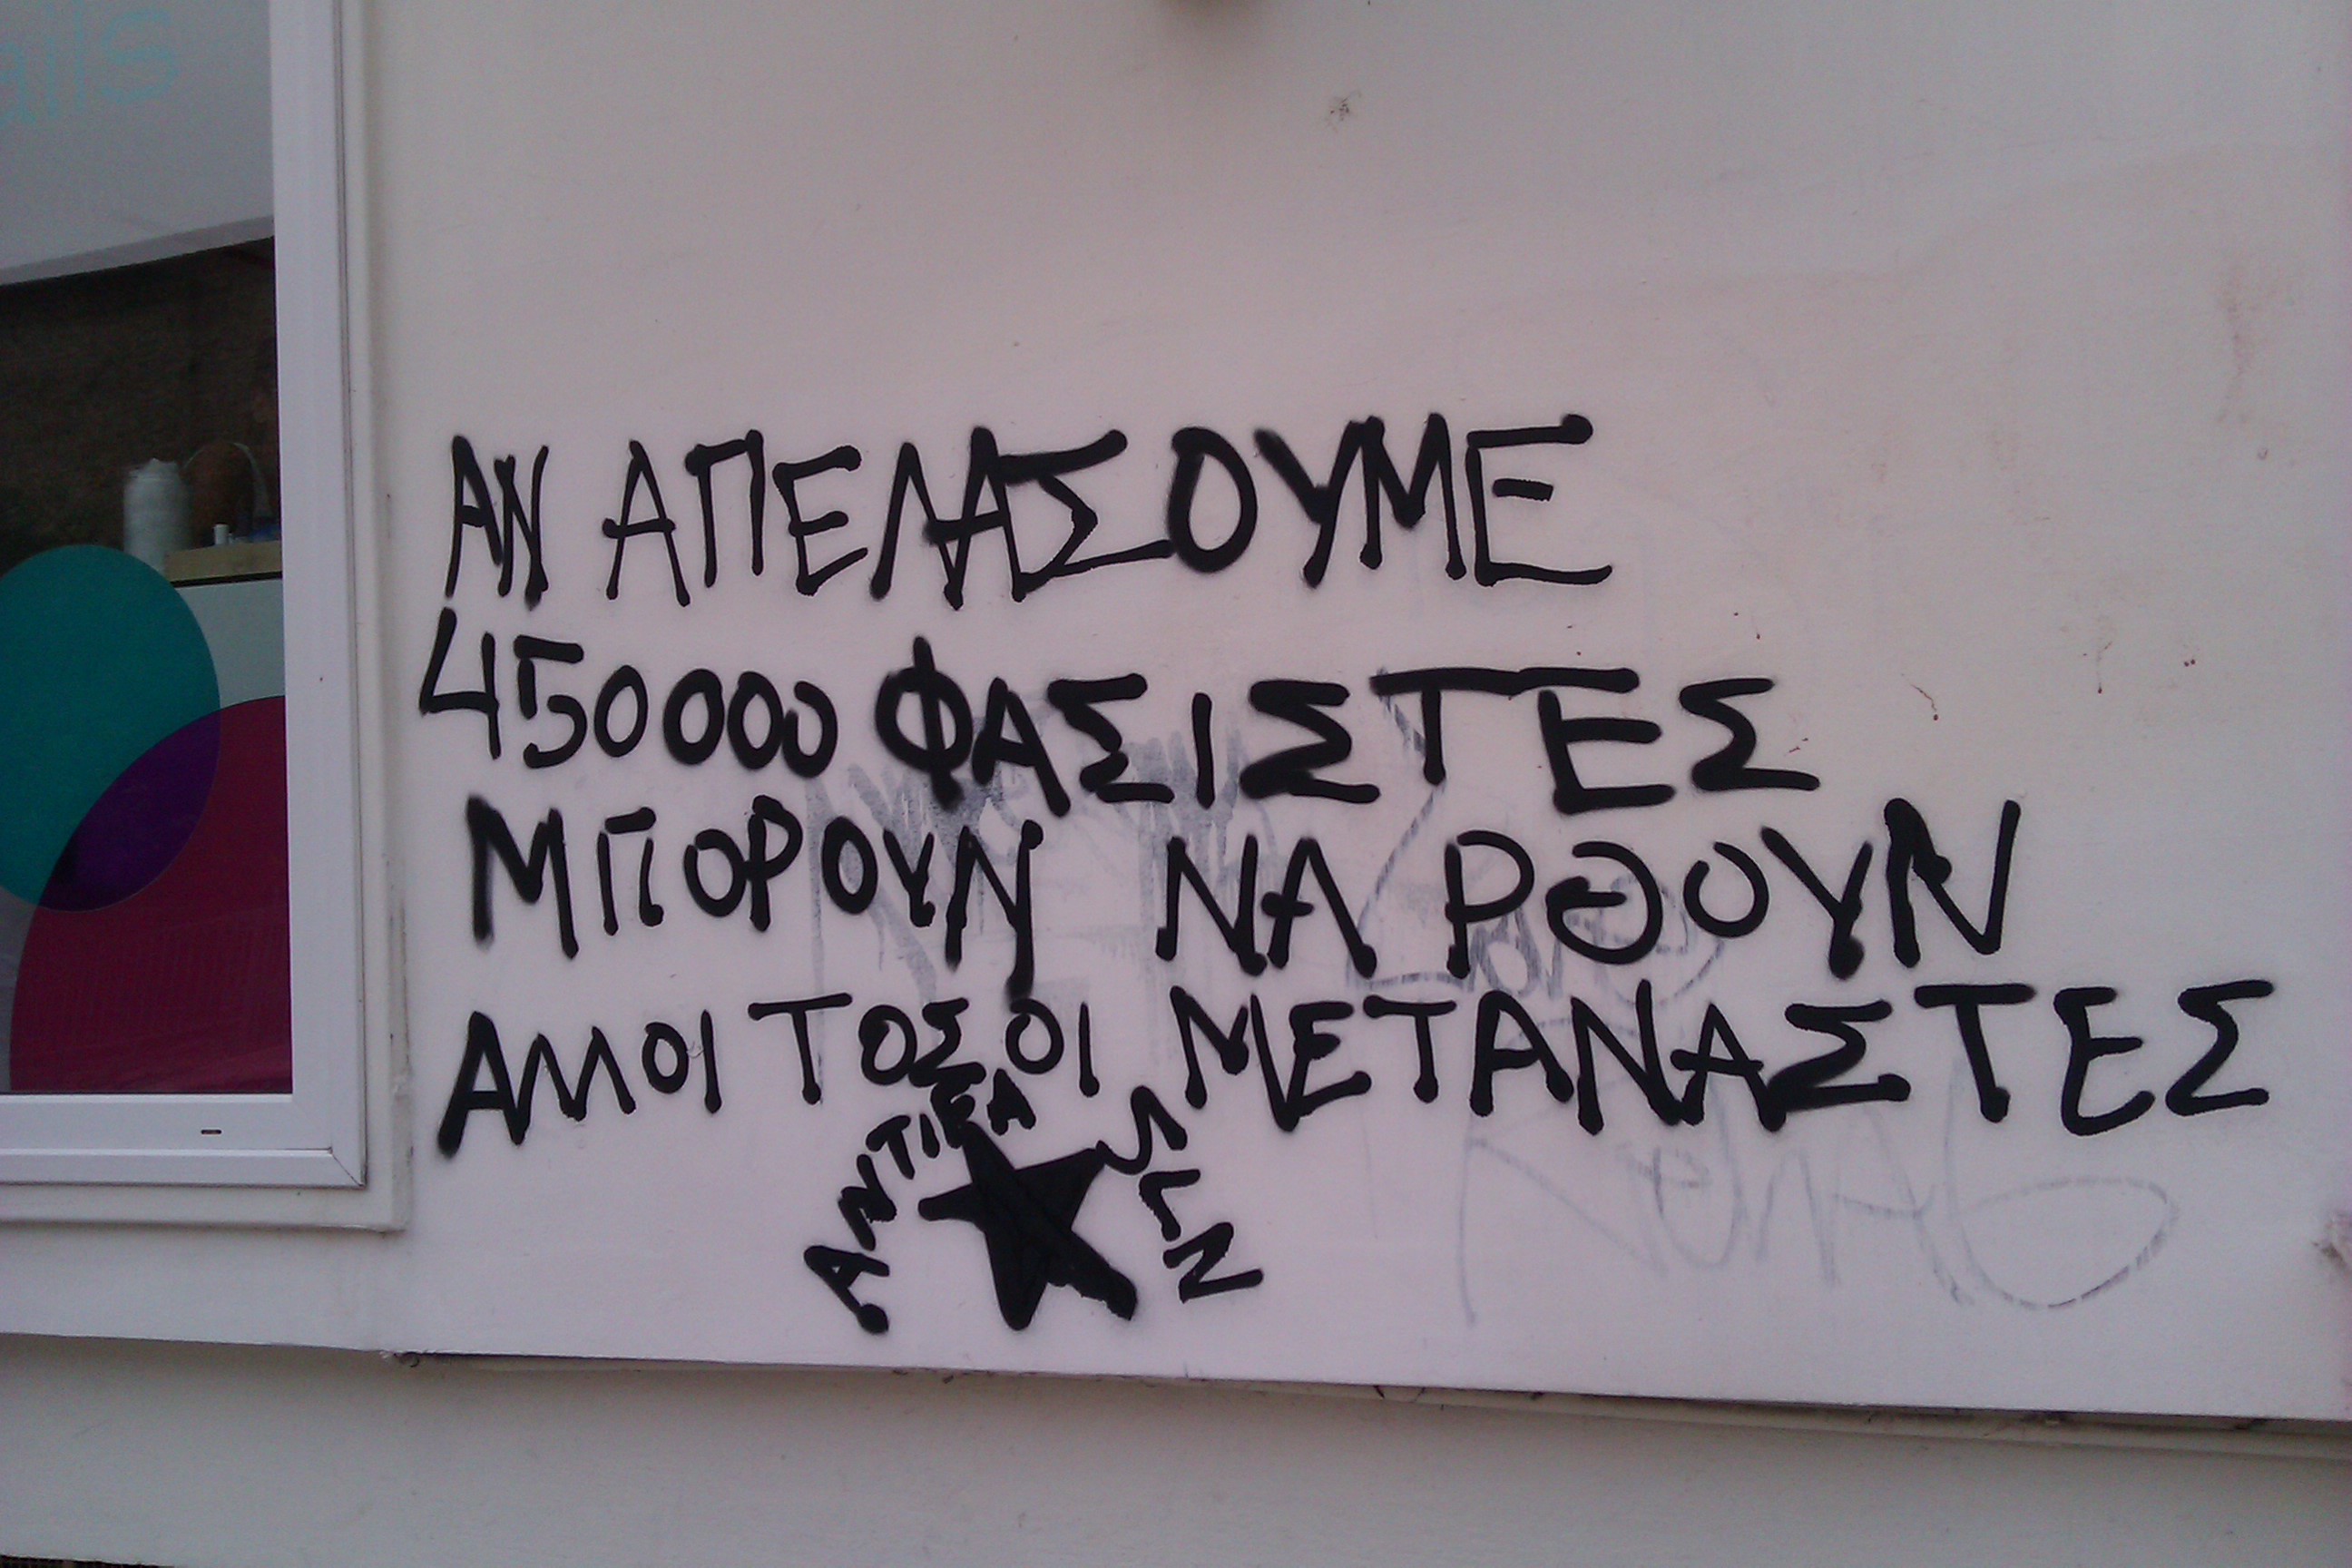 ails
ΑΝ ΑΠΕΛΑΣΟΥΜΕ
450000 ΦΑΣΙΣΤΕΣ
ΜΠΟΡΟΥΝ ΝΑ ΡΘΟΥΝ
ΑΛΛΟΙ ΤΟΣΟΙ ΜΕΤΑΝΑΣΤΕΣ
ANTIFA